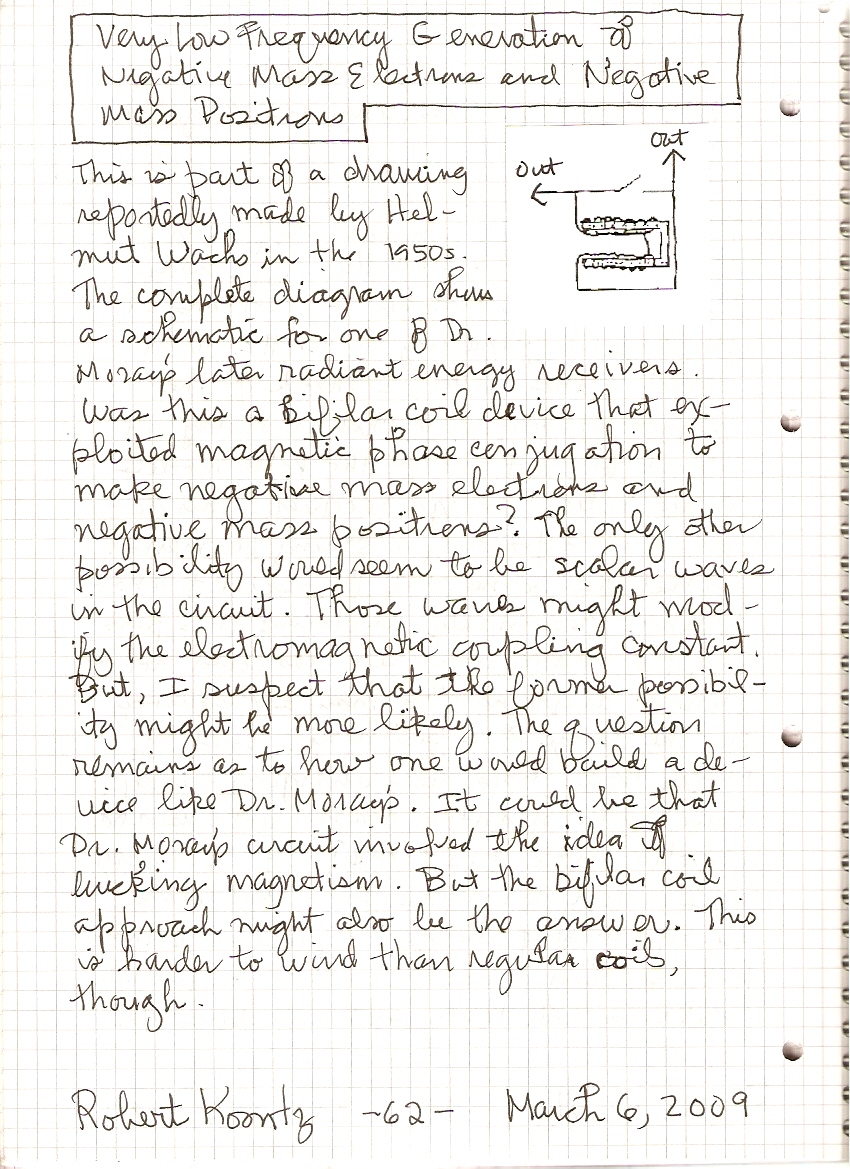 Very Low Frequency Generation of
Negative Mass Electrons and Negative
Mass Positrons
Out
Out
This is part of a drawing
reportedly made by Hel-
mut Wachs in the 1950s.
The complete diagram shows
a schematic for one of Dr.
Moray's later radiant energy receivers.
Was this a Bifilar coil device that ex-
ploited magnetic phase conjugation to
make negative mass electrons and
negative mass positrons? The only other
possibility would seem to be scalar waves
in the circuit. Those waves might mod-
ify the electromagnetic coupling constant.
But, I suspect that the former possibil-
ity might be more likely. The question
remains as to how one would build a de-
vice like Dr. Moray's. It could be that
Dr. Moray's circuit involved the idea of
bucking magnetism. But the bifilar coil
approach might also be the answer. This
is harder to wind than regular coils,
though.
Robert Koontz -62- March 6, 2009